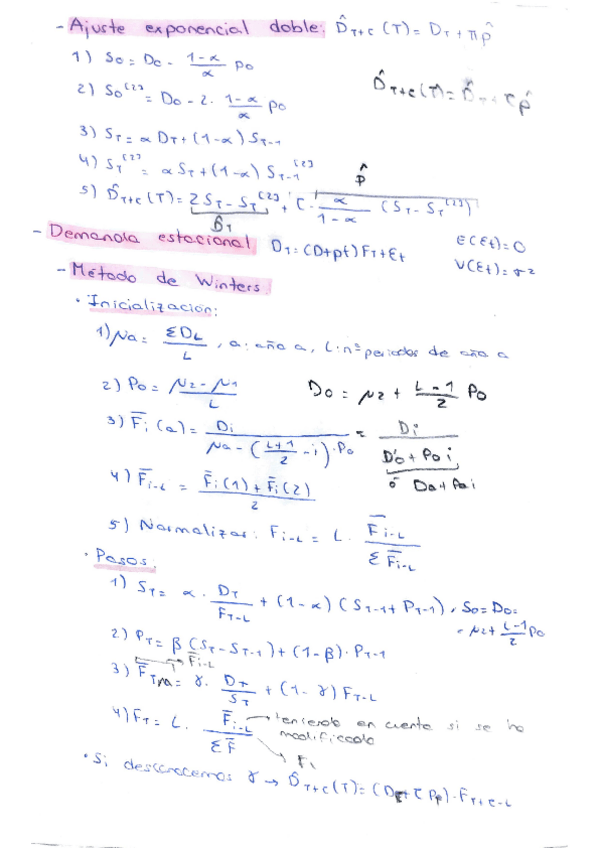 - Ajuste exponencial doble: D̂T+τ (T) = DT + τ p̂
1) S0 = D0 - (1-α)/α p0
D̂T+τ (T) = D̂T + τ p̂
2) S0^[2] = D0 - 2 · (1-α)/α p0
3) ST = α DT + (1-α) ST-1
4) ST^[2] = α ST + (1-α) ST-1^[2]
p̂
5) D̂T+τ (T) = 2 ST - ST^[2] + τ · α/(1-α) (ST - ST^[2])
D̂T
- Demanda estacional DT = (D+pt) FT + Et
E(Et) = 0
V(Et) = σ²
- Método de Winters
· Inicialización:
1) μa = ΣDi/L , a: año a, L: nº periodos de año a
2) P0 = (μ2 - μ1)/L
D0 = μ2 + (L-1)/2 P0
3) F̄i (a) = Di/(μa - ((L+1)/2 - i) · P0) = Di/(D0 + P0 i)
ó D0 + P0 i
4) F̄i-L = (F̄i (1) + F̄i (2))/2
5) Normalizar: Fi-L = L · F̄i-L/ΣF̄i-L
· Pasos:
1) ST = α · DT/FT-L + (1-α) (ST-1 + PT-1), S0 = D0 =
= μ2 + (L-1)/2 P0
2) PT = β (ST - ST-1) + (1-β) · PT-1
F̄i-L
3) F̄T = γ · DT/ST + (1-γ) FT-L
4) FT = L · F̄i-L/ΣF̄ → Teniendo en cuenta si se ha
modificado
· Si desconocemos γ → D̂T+τ (T) = (DT + τ PT) · FT+τ-L